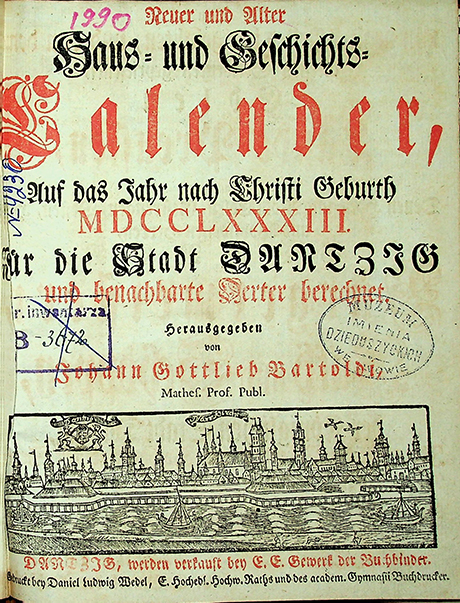 1990
Neuer und Alter
Haus- und Geschichts-
Calender,
Auf das Jahr nach Christi Geburth
MDCCLXXXIII.
Für die Stadt DANTZIG
und benachbarte Oerter berechnet,
Herausgegeben
von
Johann Gottlieb Bartoldi,
Mathes. Prof. Publ.
№ 4230
r. inwentarza
B-3672
MUZEUM
IMIENIA
DZIEDUSZYCKICH
WE LWOWIE
DANTZIG, werden verkauft bey E. E. Gewerk der Buchbinder.
Gedruckt bey Daniel Ludwig Wedel, E. Hochedl. Hochw. Raths und des academ. Gymnasii Buchdrucker.